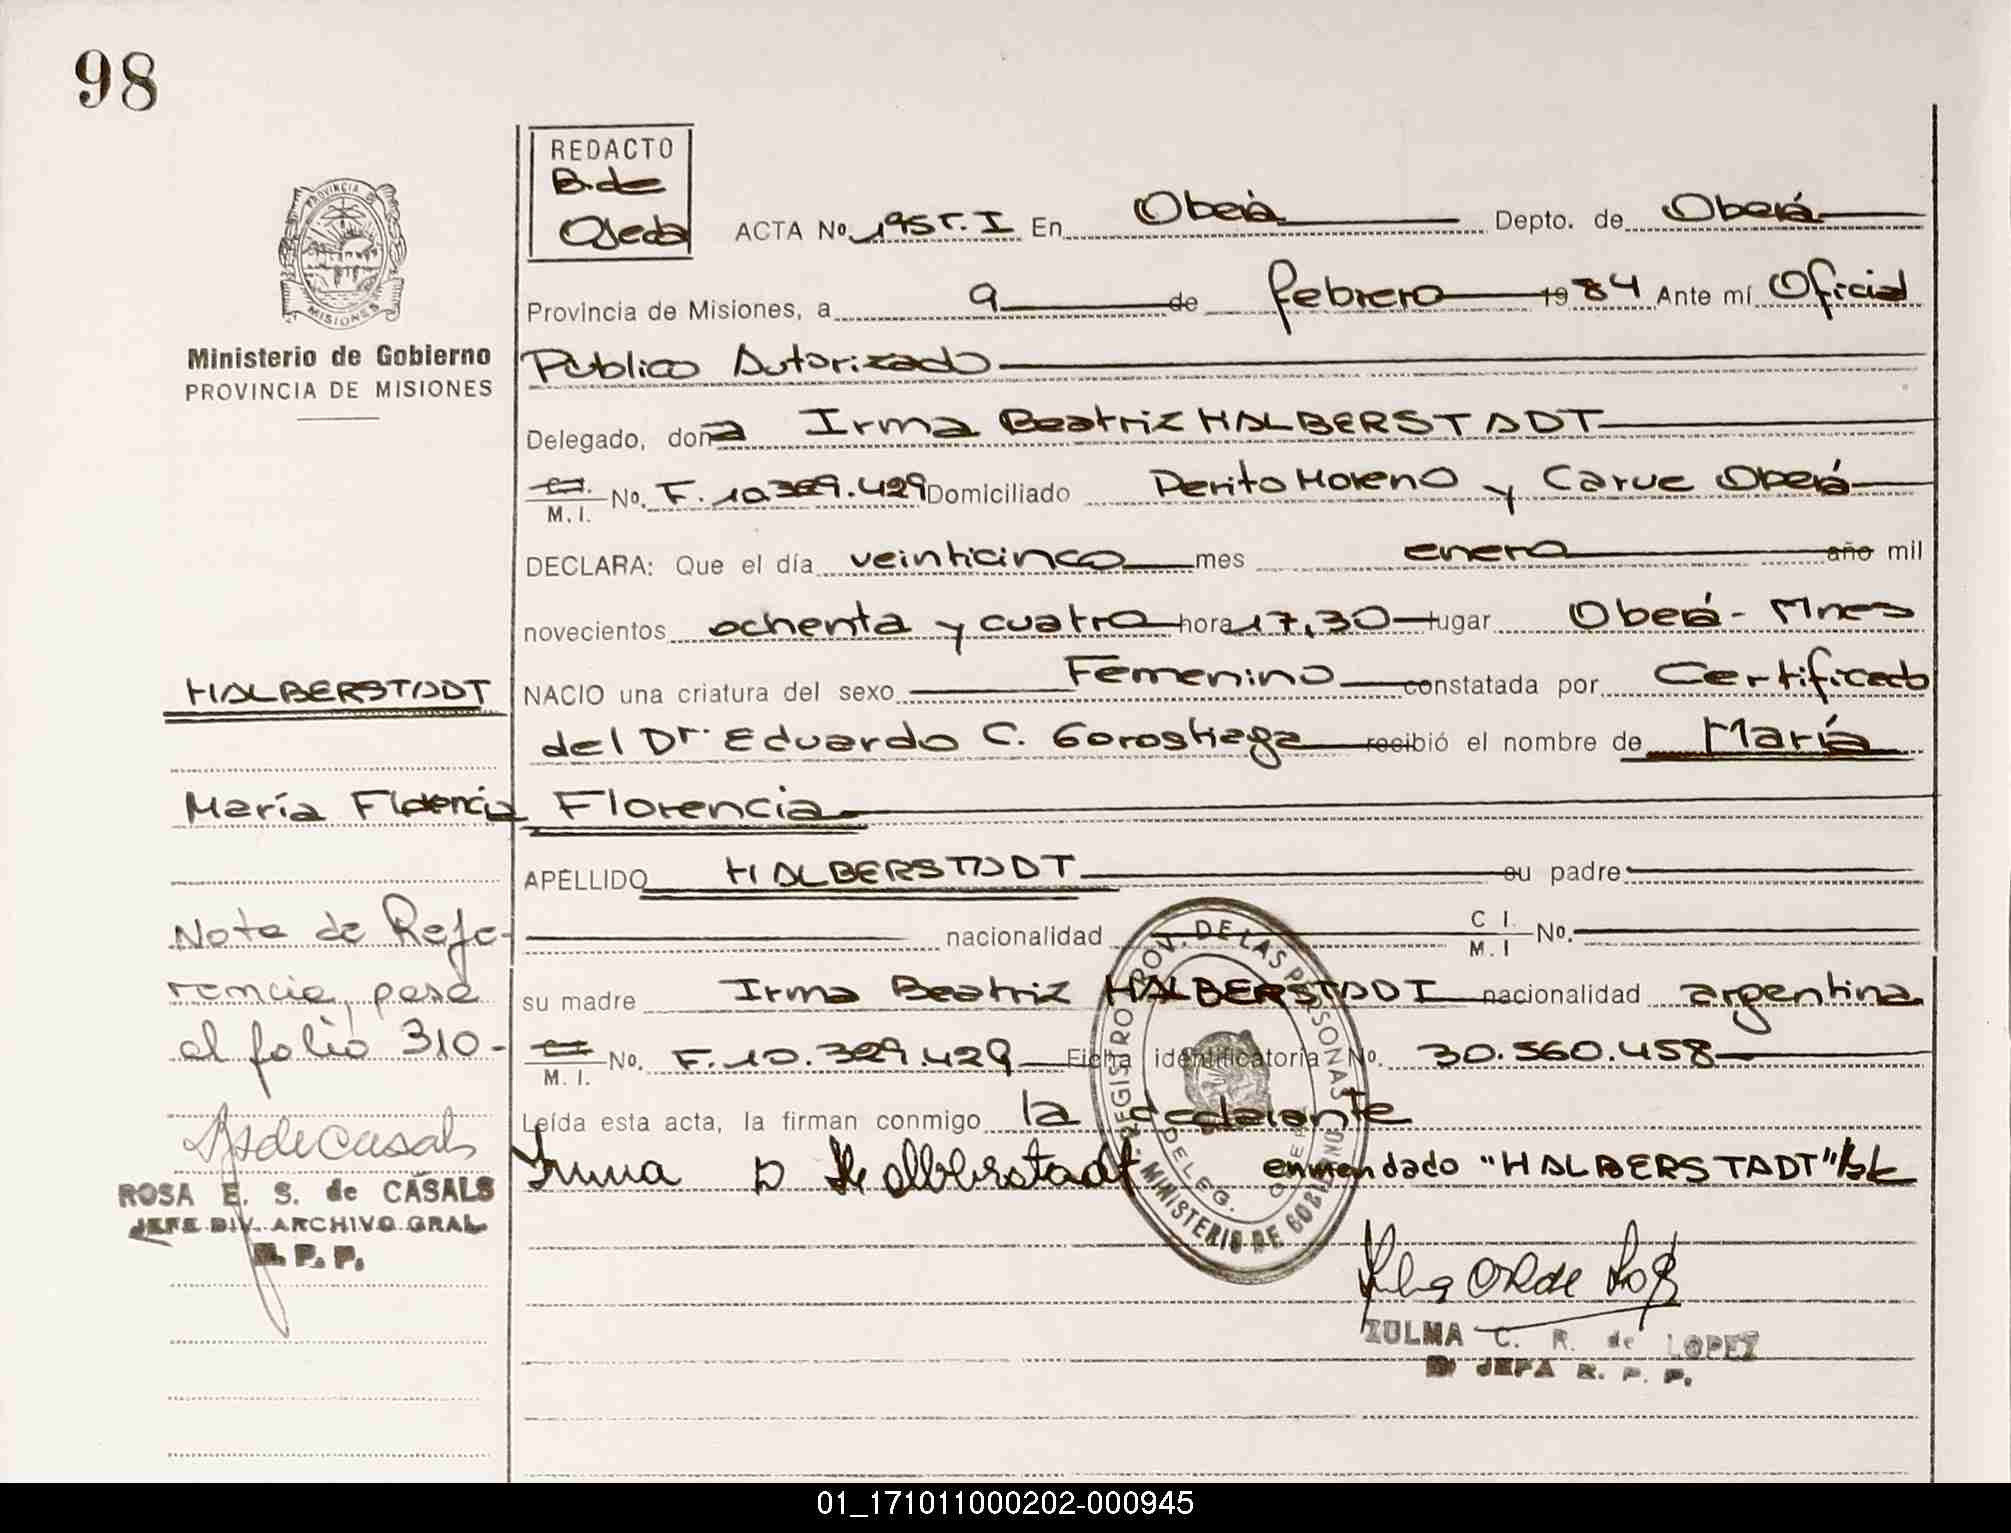 98
REDACTO
B. de
Ojeda
ACTA No. 195 T. I En Oberá Depto. de Oberá
Provincia de Misiones, a 9 de febrero 1984 Ante mí Oficial
Público Autorizado
Delegado, doña Irma Beatriz HALBERSTADT
C.I. M.I. No. F. 10.329.429 Domiciliado Perito Moreno y Carue Oberá
DECLARA: Que el día veinticinco mes enero año mil
novecientos ochenta y cuatro hora 17,30 lugar Oberá - Mnes
NACIO una criatura del sexo Femenino constatada por Certificado
del Dr. Eduardo C. Gorostiaga recibió el nombre de María
Florencia
APELLIDO HALBERSTADT su padre
nacionalidad C.I. M.I No.
su madre Irma Beatriz HALBERSTADT nacionalidad argentina
C.I. M.I. No. F. 10.329.429 Ficha identificatoria No. 30.560.458
Leída esta acta, la firman conmigo la declarante
Irma B Halberstadt enmendado "HALBERSTADT"
PROVINCIA DE
MISIONES
Ministerio de Gobierno
PROVINCIA DE MISIONES
HALBERSTADT
María Florencia
Nota de Refe-
rencia, pasa
al folio 310-
ROSA E. S. de CASALS
JEFE DIV. ARCHIVO GRAL
R. P. P.
REGISTRO PROV. DE LAS PERSONAS
MINISTERIO DE GOBIERNO
DELEG. OBERA
ZULMA C. R. de LOPEZ
JEFA R. P. P.
01_171011000202-000945